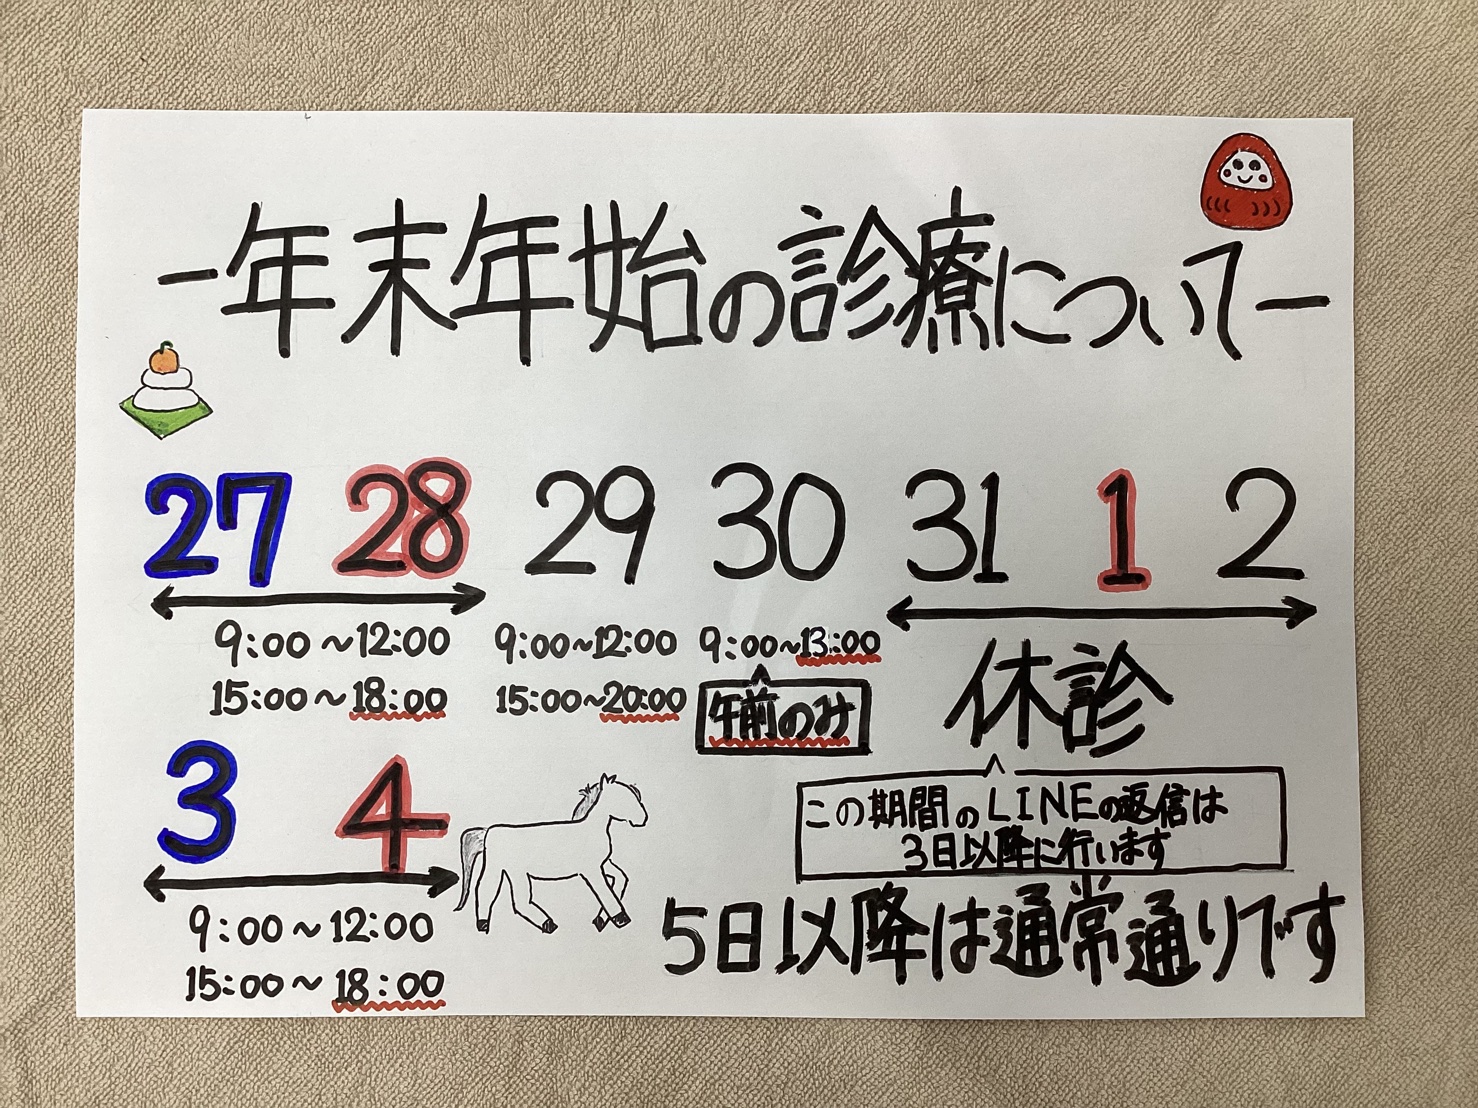 -年末年始の診療について-
27 28 29 30 31 1 2
9:00~12:00 9:00~12:00 9:00~13:00
15:00~18:00 15:00~20:00 午前のみ
休診
この期間のLINEの返信は
3日以降に行います
3 4
9:00~12:00
15:00~18:00
5日以降は通常通りです